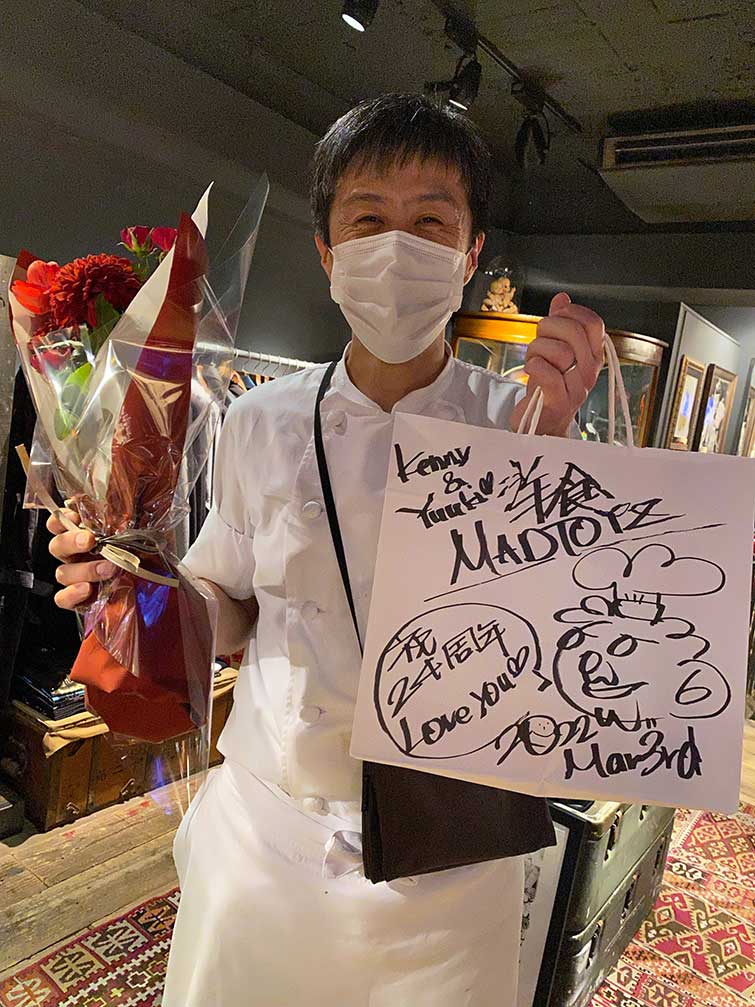 Kenny
&
Yuuki♡
洋食
MADTOYZ
祝
24周年
Love You♡
2022
Mar 3rd